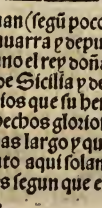 uan (segũ poco
nauarra y depu
ño el rey doña
de Sicilia y de
ios que su her
hechos glorios
as largo y qu
to aqui solan
s segun que e